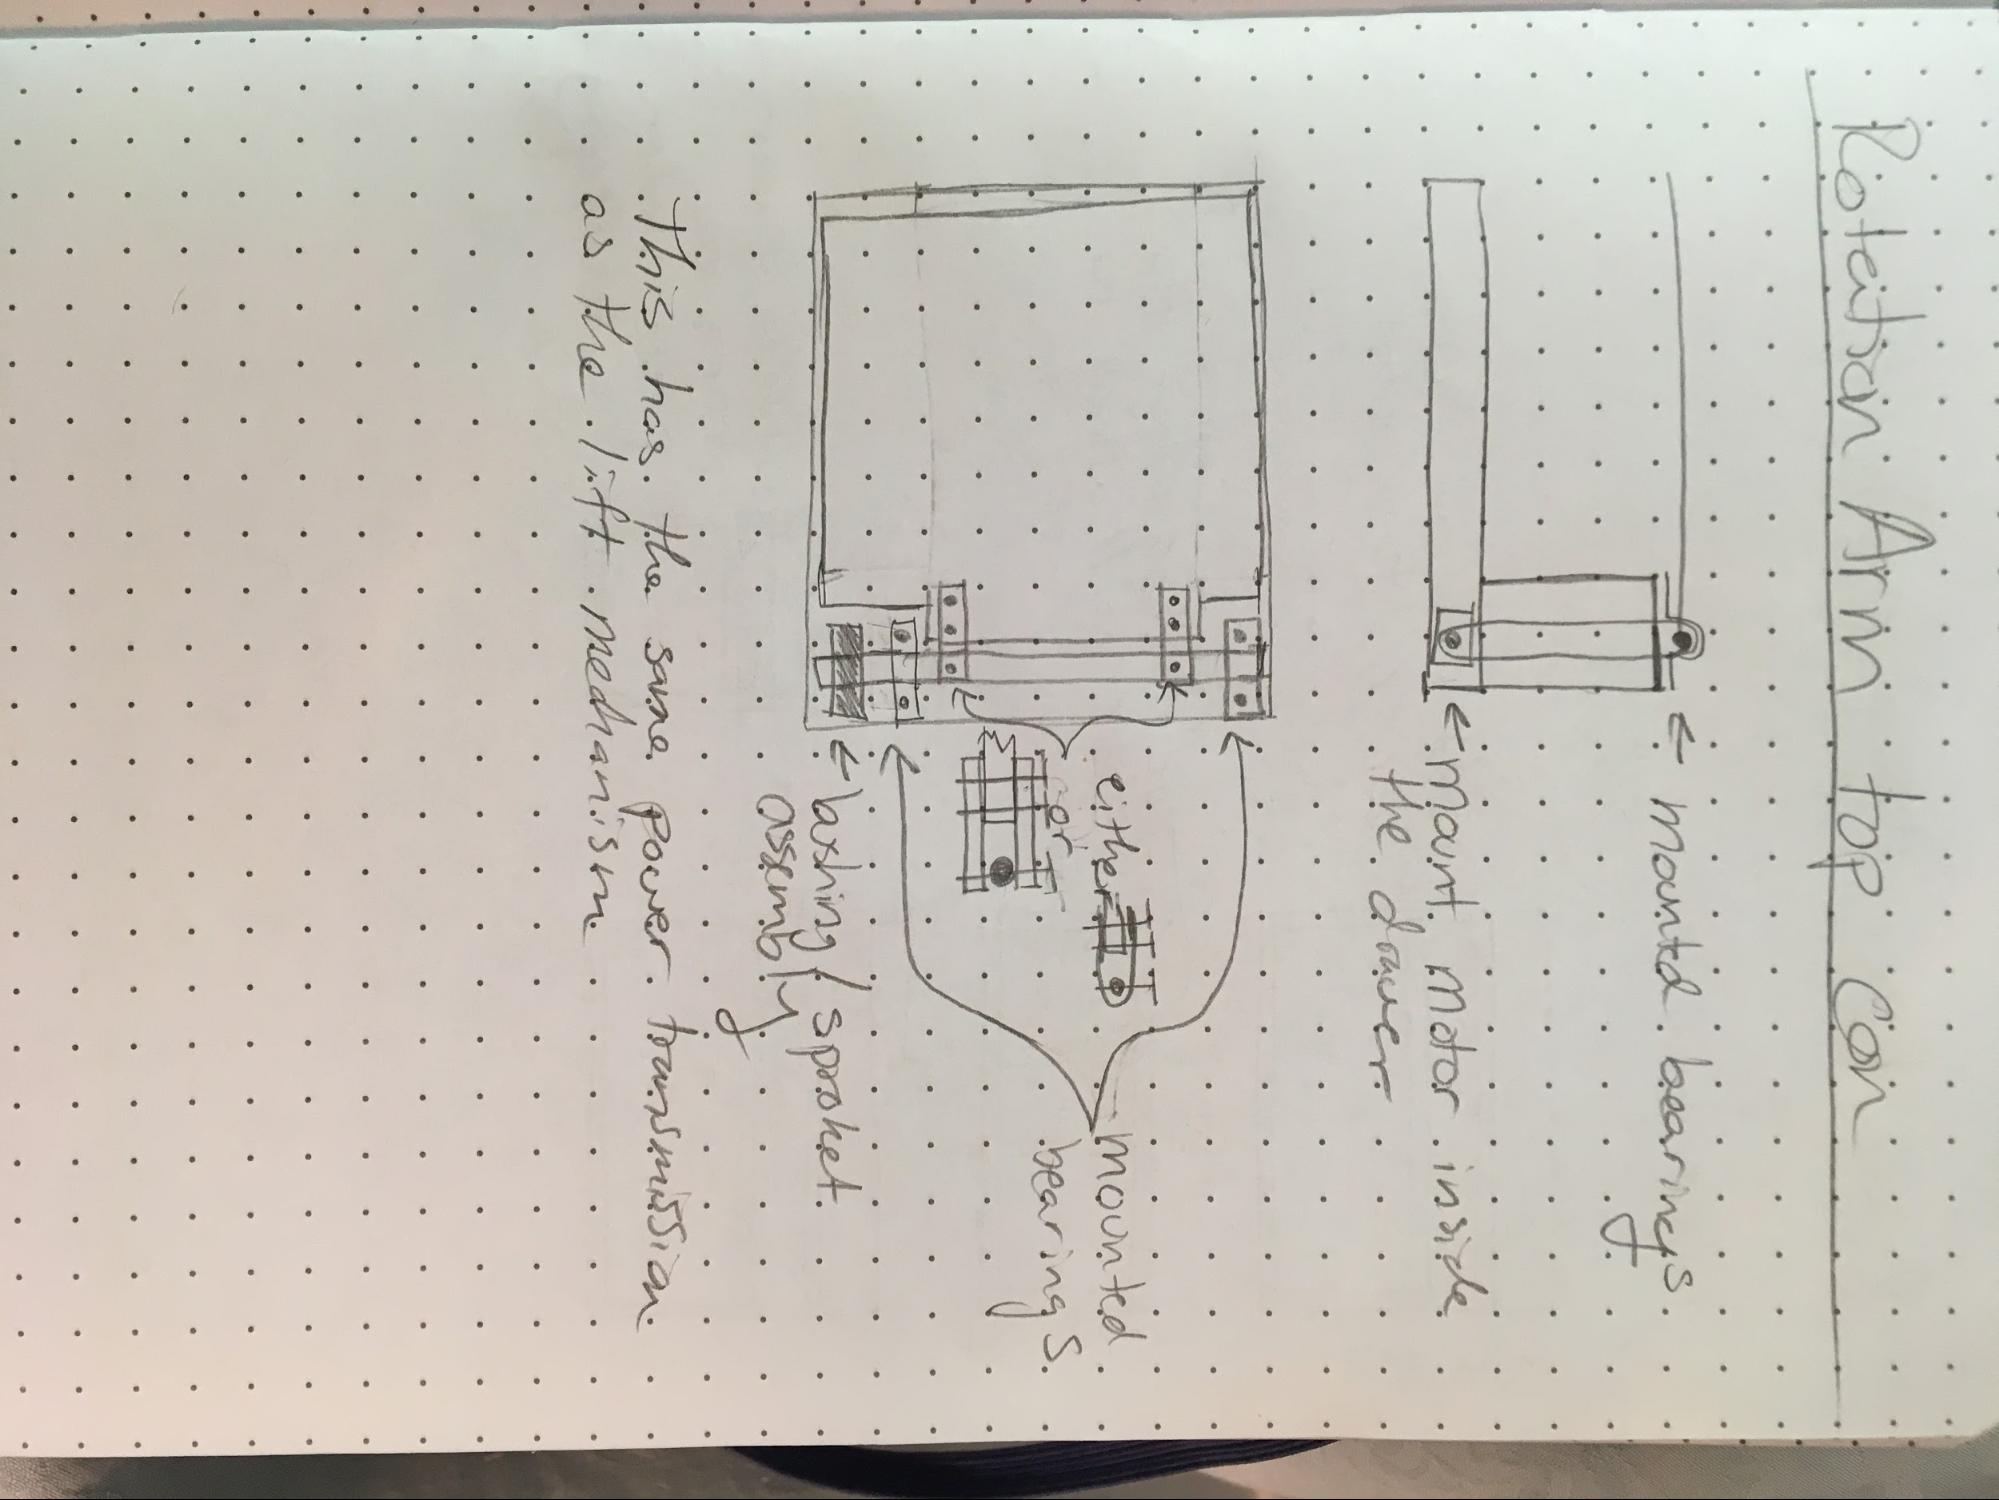 Rotation Arm top Con
← mounted bearings
← mount motor inside
the drawer
mounted
bearings
either
or
← bushing / sproket
assembly
This has the same power transmission
as the lift mechanism